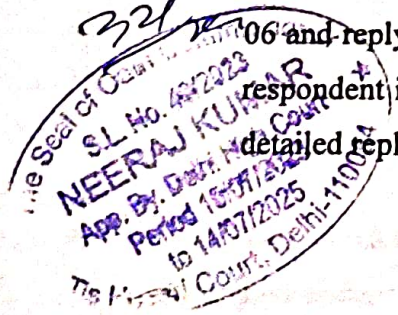 06 and reply
respondent i
detailed repl
The Seal of Oath Commissioner
S.L. No. 49/2023
NEERAJ KUMAR
App. By. Delhi High Court
Period 15/07/2023
to 14/07/2025
Tis Hazari Court, Delhi-110054